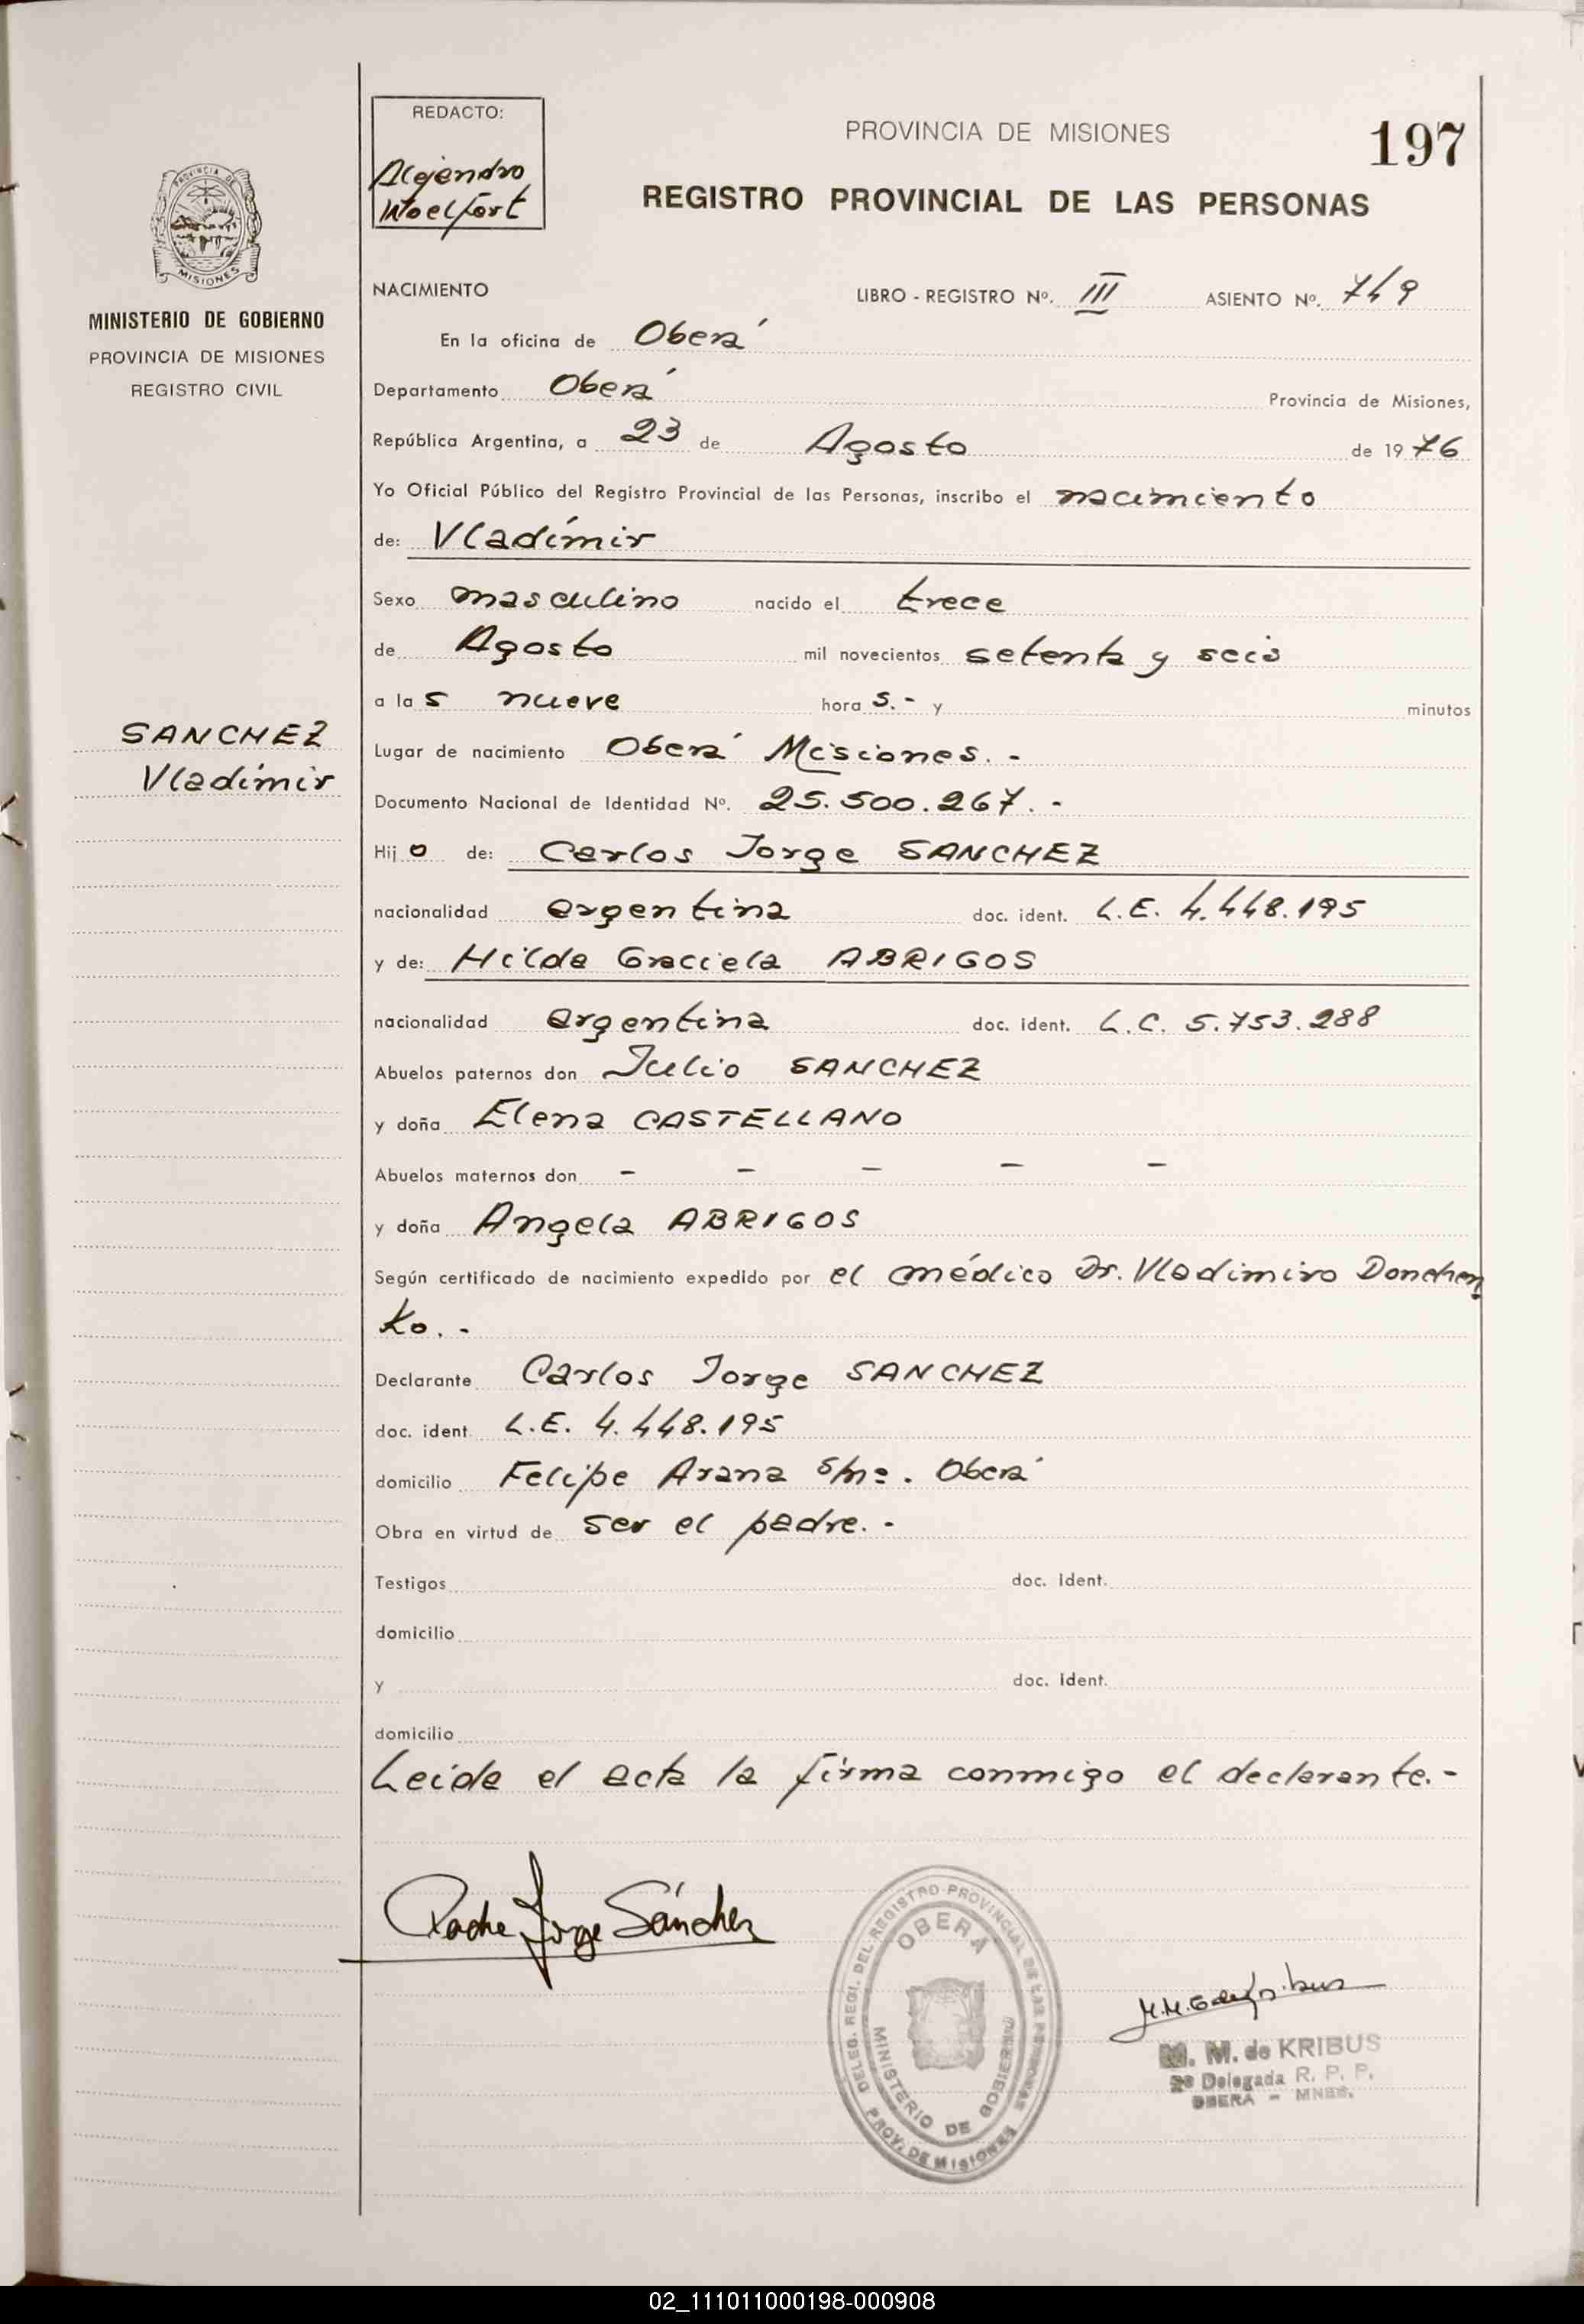 REDACTO:
Alejandro
Woelfort
PROVINCIA DE MISIONES
197
REGISTRO PROVINCIAL DE LAS PERSONAS
PROVINCIA DE
MISIONES
MINISTERIO DE GOBIERNO
PROVINCIA DE MISIONES
REGISTRO CIVIL
NACIMIENTO LIBRO - REGISTRO Nº. III ASIENTO Nº. 749
En la oficina de Oberá
Departamento Oberá Provincia de Misiones,
República Argentina, a 23 de Agosto de 1976
Yo Oficial Público del Registro Provincial de las Personas, inscribo el nacimiento
de: Vladímir
Sexo masculino nacido el trece
de Agosto mil novecientos setenta y seis
a las nueve horas.- y minutos
SANCHEZ
Vladímir
Lugar de nacimiento Oberá Misiones.-
Documento Nacional de Identidad Nº. 25.500.267.-
Hijo de: Carlos Jorge SANCHEZ
nacionalidad argentina doc. ident. L.E. 4.448.195
y de: Hilda Graciela ABRIGOS
nacionalidad argentina doc. ident. L.C. 5.753.288
Abuelos paternos don Julio SANCHEZ
y doña Elena CASTELLANO
Abuelos maternos don - - - - -
y doña Angela ABRIGOS
Según certificado de nacimiento expedido por el médico Dr. Vladimiro Donchen
ko.-
Declarante Carlos Jorge SANCHEZ
doc. ident. L.E. 4.448.195
domicilio Felipe Arana s/nº. Oberá
Obra en virtud de ser el padre.-
Testigos doc. ident.
domicilio
y doc. ident.
domicilio
Leida el acta la firma conmigo el declarante.-
Padre Jorge Sánchez
DELEG. REGI. DEL REGISTRO PROVINCIAL DE LAS PERSONAS
OBERA
MINISTERIO DE GOBIERNO
PROV. DE MISIONES
M. M. de KRIBUS
2º Delegada R. P. P.
OBERA - MNES.
02_111011000198-000908